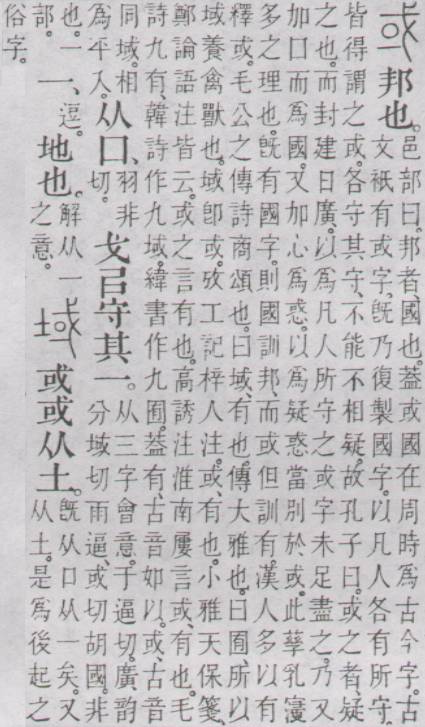 或邦也。邑部曰。邦者、國也。葢或國在周時爲古今字。古
文衹有或字、旣乃復製國字。以凡人各有所守、
皆得謂之或。各守其守、不能不相疑。故孔子曰。或之者、疑
之也。而封建日廣、以爲凡人所守之或字未足盡之。乃又
加囗而爲國。又加心爲惑。以爲疑惑當別於或。此孳乳寖
多之理也。旣有國字、則國訓邦、而或但訓有。漢人多以有
釋或。毛公之傳詩商頌也。曰域、有也。傳大雅也。曰囿、所以
域養禽獸也。域卽或。攷工記梓人注。或、有也。小雅天保箋、
鄭論語注皆云。或之言有也。高誘注淮南屢言或、有也。毛
詩九有、韓詩作九域、緯書作九囿。葢有、古音如以。或、古音
同域。相
爲平入。从囗、羽非切。戈㠯守其一。从三字會意。于逼切。廣韵
分域切雨逼、或切胡國。非
也。
部。一、逗。地也。解从一之意。域或或从土。旣从囗从一矣。又
从土。是爲後起之
俗字。